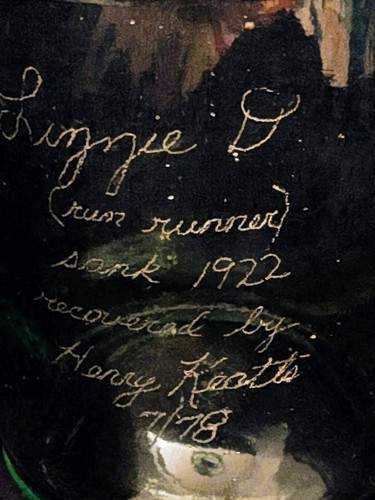 Lizzie D
(rum runner)
sank 1922
recovered by
Henry Keatts
7/78